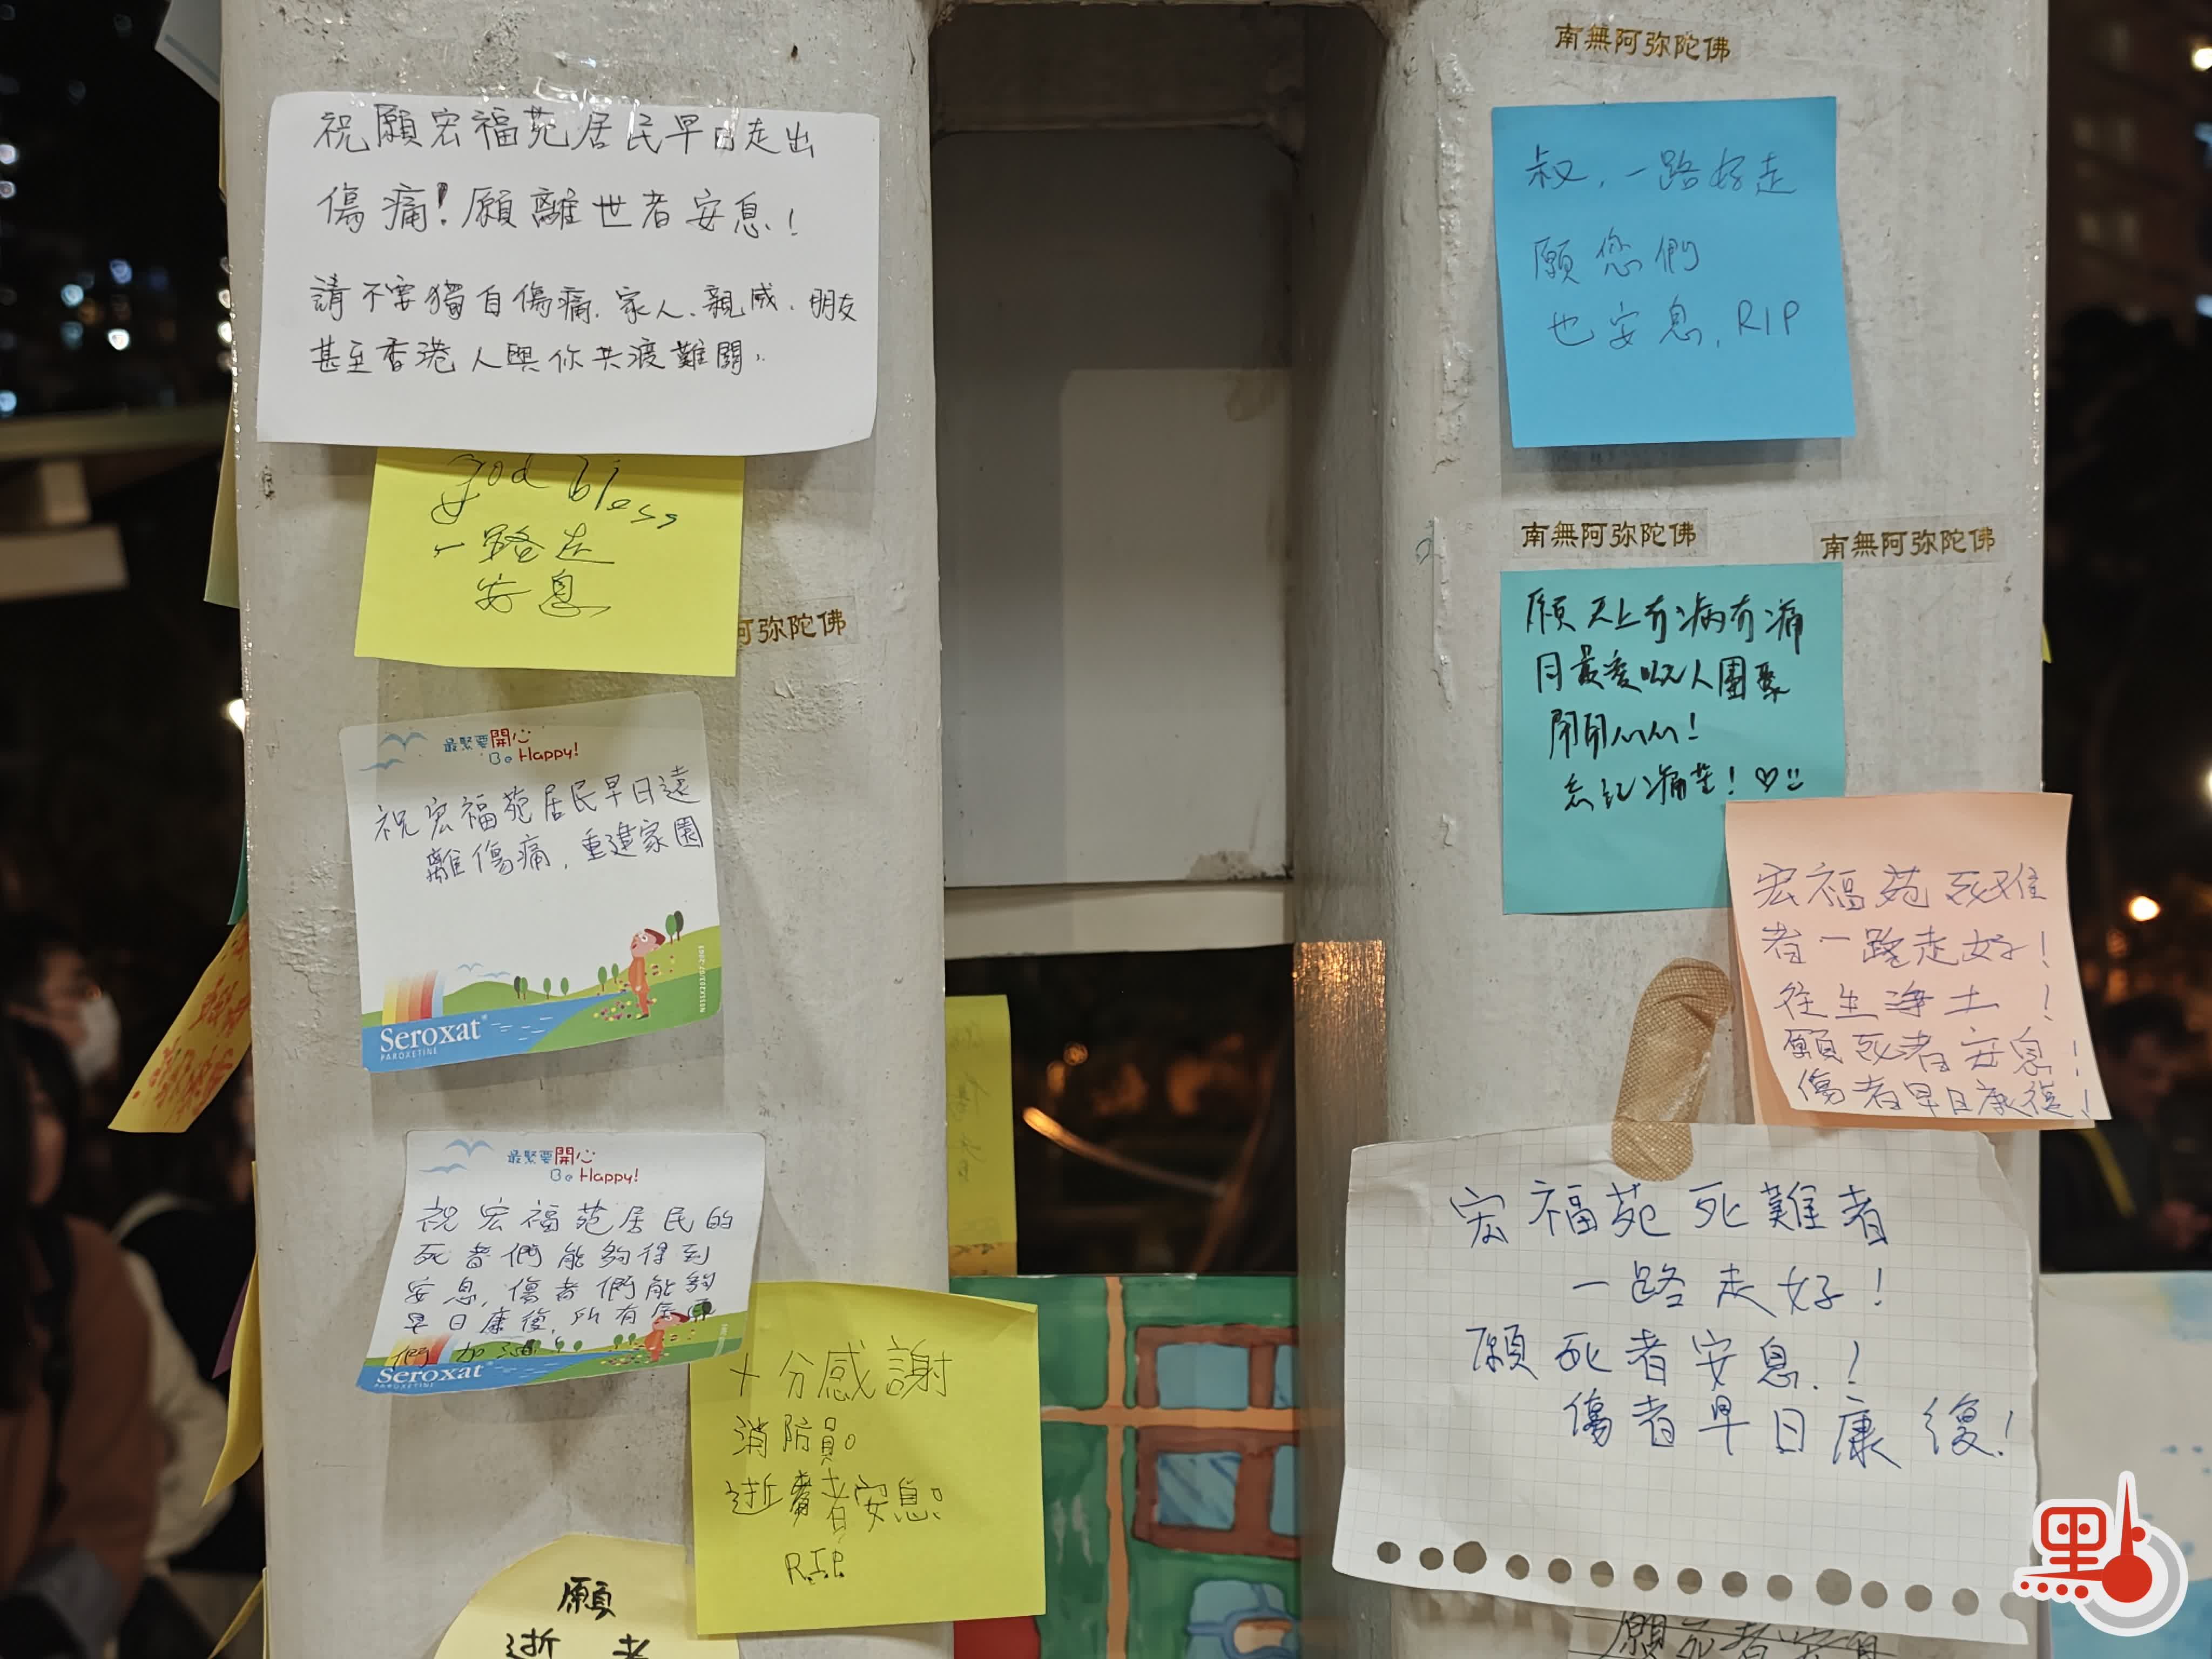 祝願宏福苑居民早日走出
傷痛!願離世者安息!
請不要獨自傷痛、家人、親戚、朋友
甚至香港人與你共渡難關。
god bless
一路走
安息
阿弥陀佛
最緊要開心
Be Happy!
祝宏福苑居民早日遠
離傷痛,重建家園
Seroxat
PAROXETINE
最緊要開心
Be Happy!
祝宏福苑居民的
死者們能夠得到
安息,傷者們能夠
早日康復,所有居民
們加油!
Seroxat
PAROXETINE
十分感謝
消防員。
逝者安息。
R.I.P.
願
逝者
南無阿弥陀佛
叔,一路好走
願您們
也安息,RIP
南無阿弥陀佛
南無阿弥陀佛
願天上冇病冇痛
同最愛嘅人團聚
開開心心!
忘記痛苦!♡
宏福苑死难
者一路走好!
往生淨土!
願死者安息!
傷者早日康復!
宏福苑死難者
一路走好!
願死者安息!
傷者早日康復!
願死者安息
點